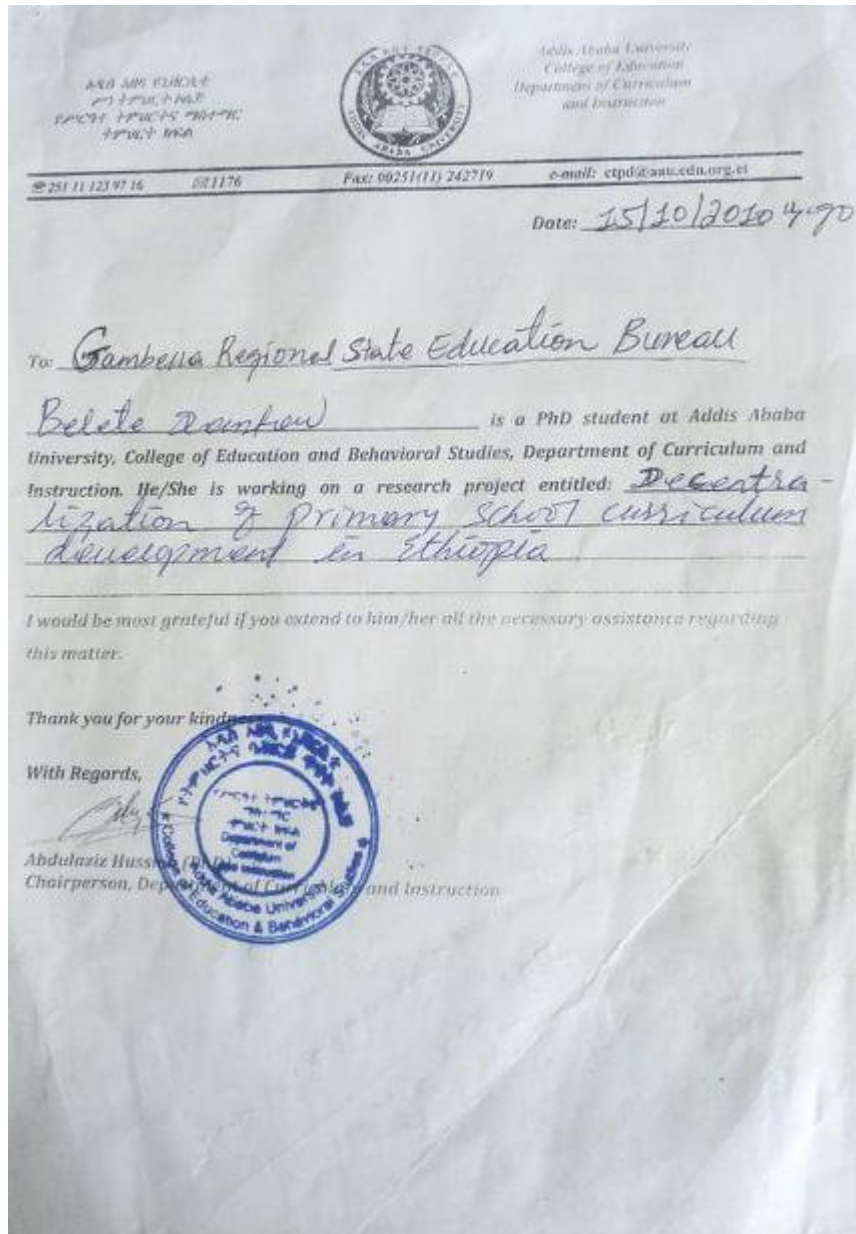 አዲስ አበባ ዩኒቨርሲቲ
ሥነ ትምህርት ኮሌጅ
የሥርዓተ ትምህርትና ማስተማር
ትምህርት ክፍል
ADDIS ABABA UNIVERSITY
Addis Ababa University
College of Education
Department of Curriculum
and Instruction
251 11 123 97 16 1176 Fax: 00251(11) 242719 e-mail: ctpd@aau.edu.org.et
Date: 15/10/2010
To: Gambella Regional State Education Bureau
Belete is a PhD student at Addis Ababa
University, College of Education and Behavioral Studies, Department of Curriculum and
Instruction. He/She is working on a research project entitled: Decentra-
lization of primary school curriculum
development in Ethiopia
I would be most grateful if you extend to him/her all the necessary assistance regarding
this matter.
Thank you for your
With Regards,
Abdulaziz (PhD)
Chairperson, Department of Curriculum and Instruction
Department of
Curriculum
and Instruction
Addis Ababa University
College of Education & Behavioral Studies